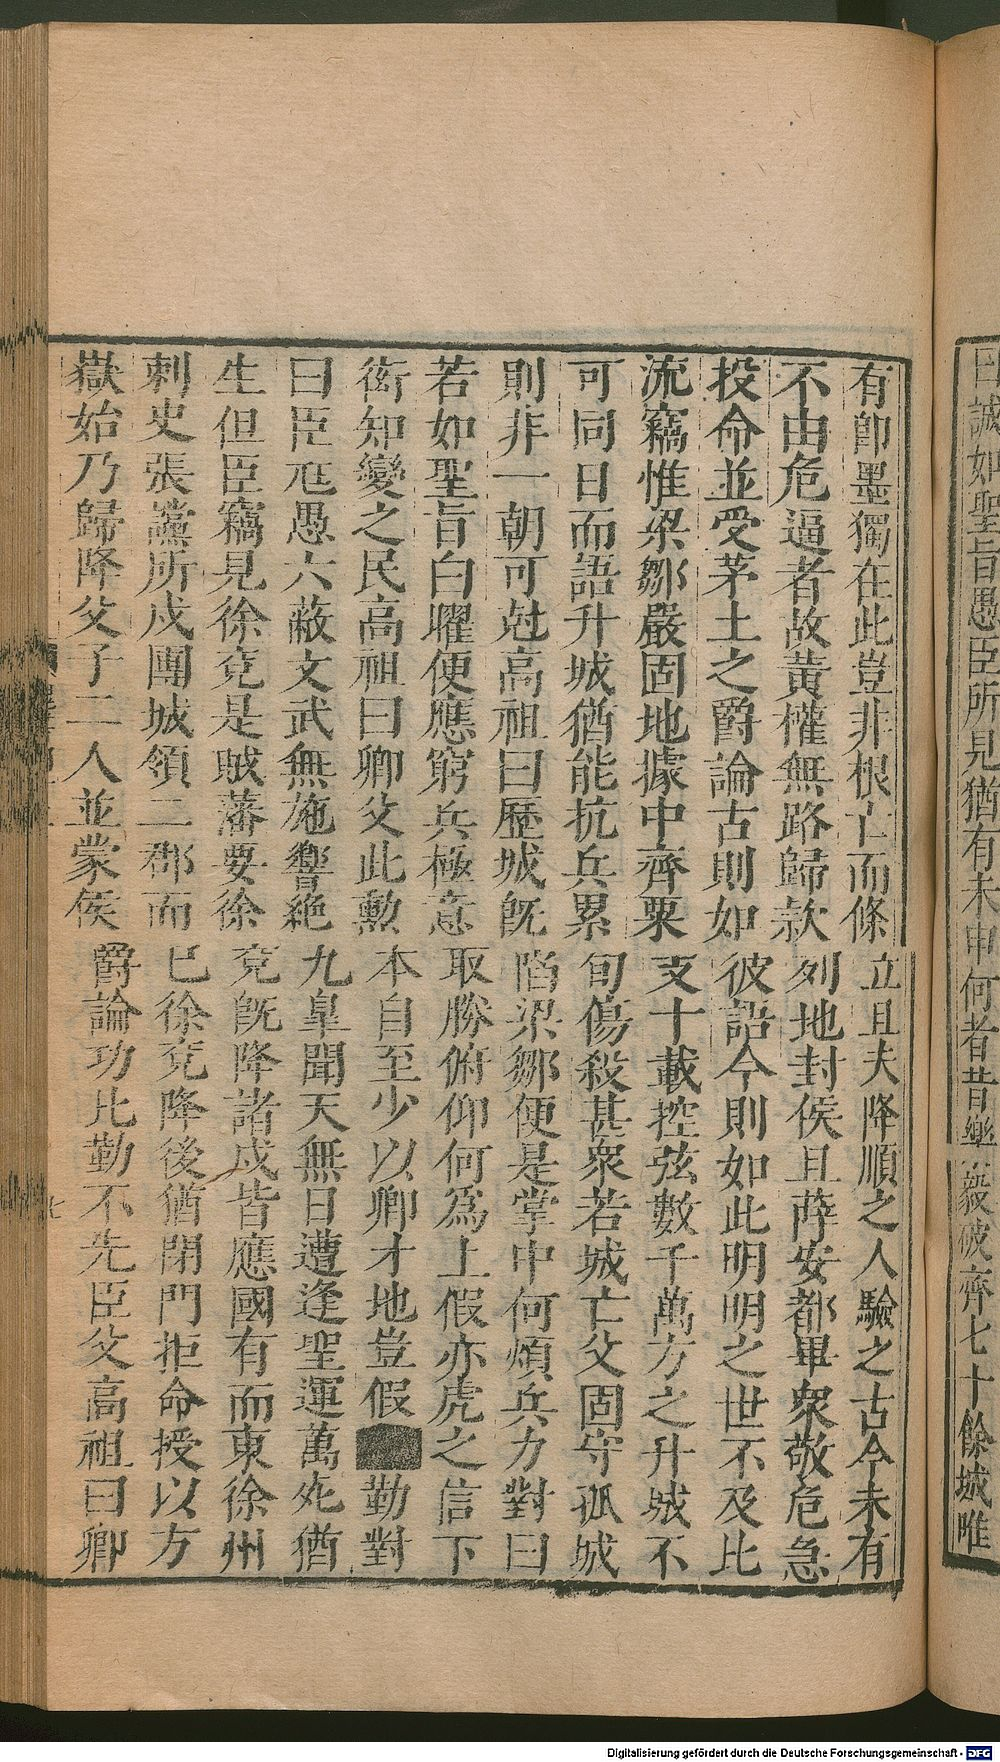 曰誠如聖旨愚臣所見猶有未申何者昔樂毅破齊七十餘城唯
有即墨獨在此豈非根亡而條立且夫降順之人驗之古今未有
不由危逼者故黃權無路歸款列地封侯且薛安都畢衆敬危急
投命並受茅土之爵論古則如彼語今則如此明明之世不及比
流竊惟梁鄒嚴固地據中齊粟支十載控弦數千萬方之升城不
可同日而語升城猶能抗兵累旬傷殺甚衆若城亡父固守孤城
則非一朝可尅高祖曰歷城旣陷梁鄒便是掌中何煩兵力對曰
若如聖旨白曜便應窮兵極意取勝俯仰何爲上假赤虎之信下
衒知變之民高祖曰卿父此勳本自至少以卿才地豈假勤對
曰臣尫愚六蔽文武無施響絶九臯聞天無日遭逢聖運萬死猶
生但臣竊見徐兗是賊藩要徐兗旣降諸戍皆應國有而東徐州
刺史張讜所戍團城領二郡而已徐兗降後猶閉門拒命授以方
嶽始乃歸降父子二人並蒙侯爵論功比勤不先臣父高祖曰卿
七
Digitalisierung gefördert durch die Deutsche Forschungsgemeinschaft - DFG